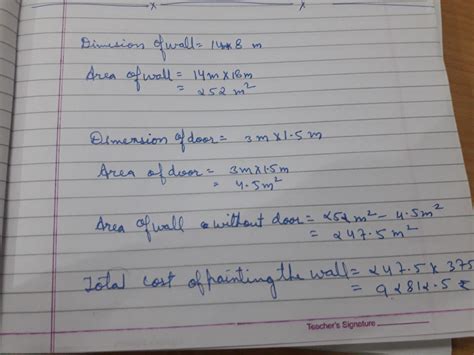 Dimension of wall = 14x8 m
Area of wall = 14m x 18m
= 252 m²
Dimension of door = 3m x 1.5 m
Area of door = 3m x 1.5m
= 4.5m²
Area of wall without door = 252 m² - 4.5m²
= 247.5 m²
Total cost of painting the wall = 247.5 x 375
= 92812.5 ₹
Teacher's Signature